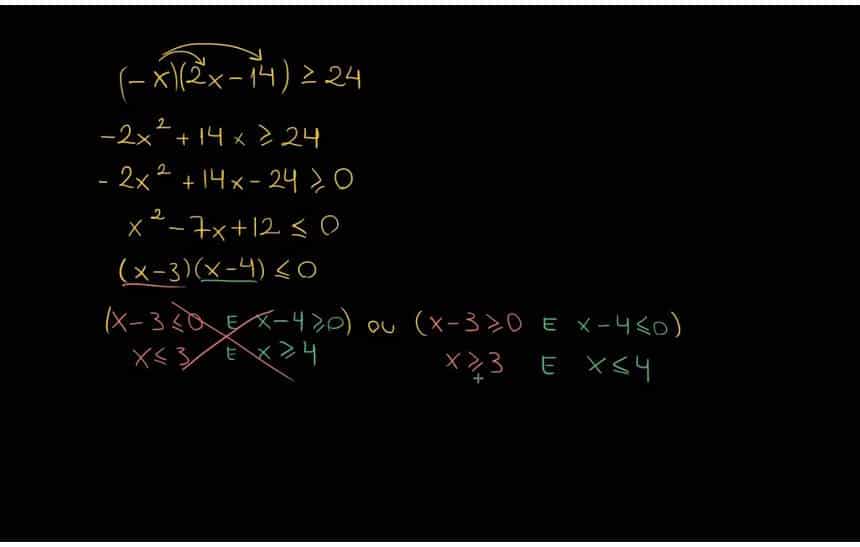 (-x)(2x-14) ≥ 24
-2x² + 14x ≥ 24
-2x² + 14x - 24 ≥ 0
x² - 7x + 12 ≤ 0
(x-3)(x-4) ≤ 0
(x-3≤0 E x-4≥0) ou (x-3≥0 E x-4≤0)
x≤3 E x≥4 x≥3 E x≤4